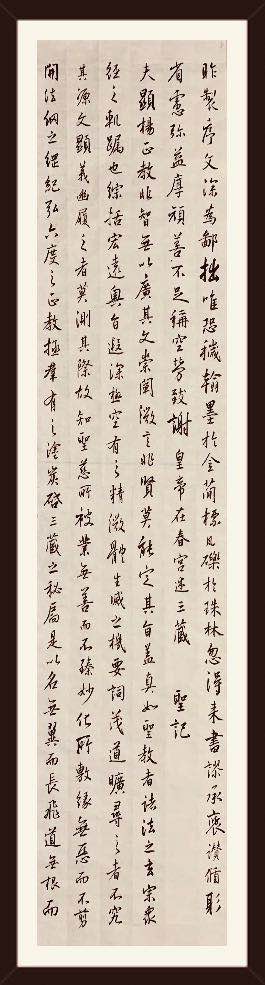 昨製序文深為鄙拙唯恐穢翰墨於金簡標瓦礫於珠林忽得來書謬承褒讚循躬
省慮弥益厚顏善不足稱空勞致謝 皇帝在春宮述三藏 聖記
夫顯揚正教非智無以廣其文崇闡微言非賢莫能定其旨蓋真如聖教者諸法之玄宗衆
經之軌躅也綜括宏遠奧旨遐深極空有之精微體生滅之機要詞茂道曠尋之者不究
其源文顯義幽履之者莫測其際故知聖慈所被業無善而不臻妙化所敷緣無惡而不剪
開法網之綱紀弘六度之正教拯群有之塗炭啓三藏之秘扃是以名無翼而長飛道無根而